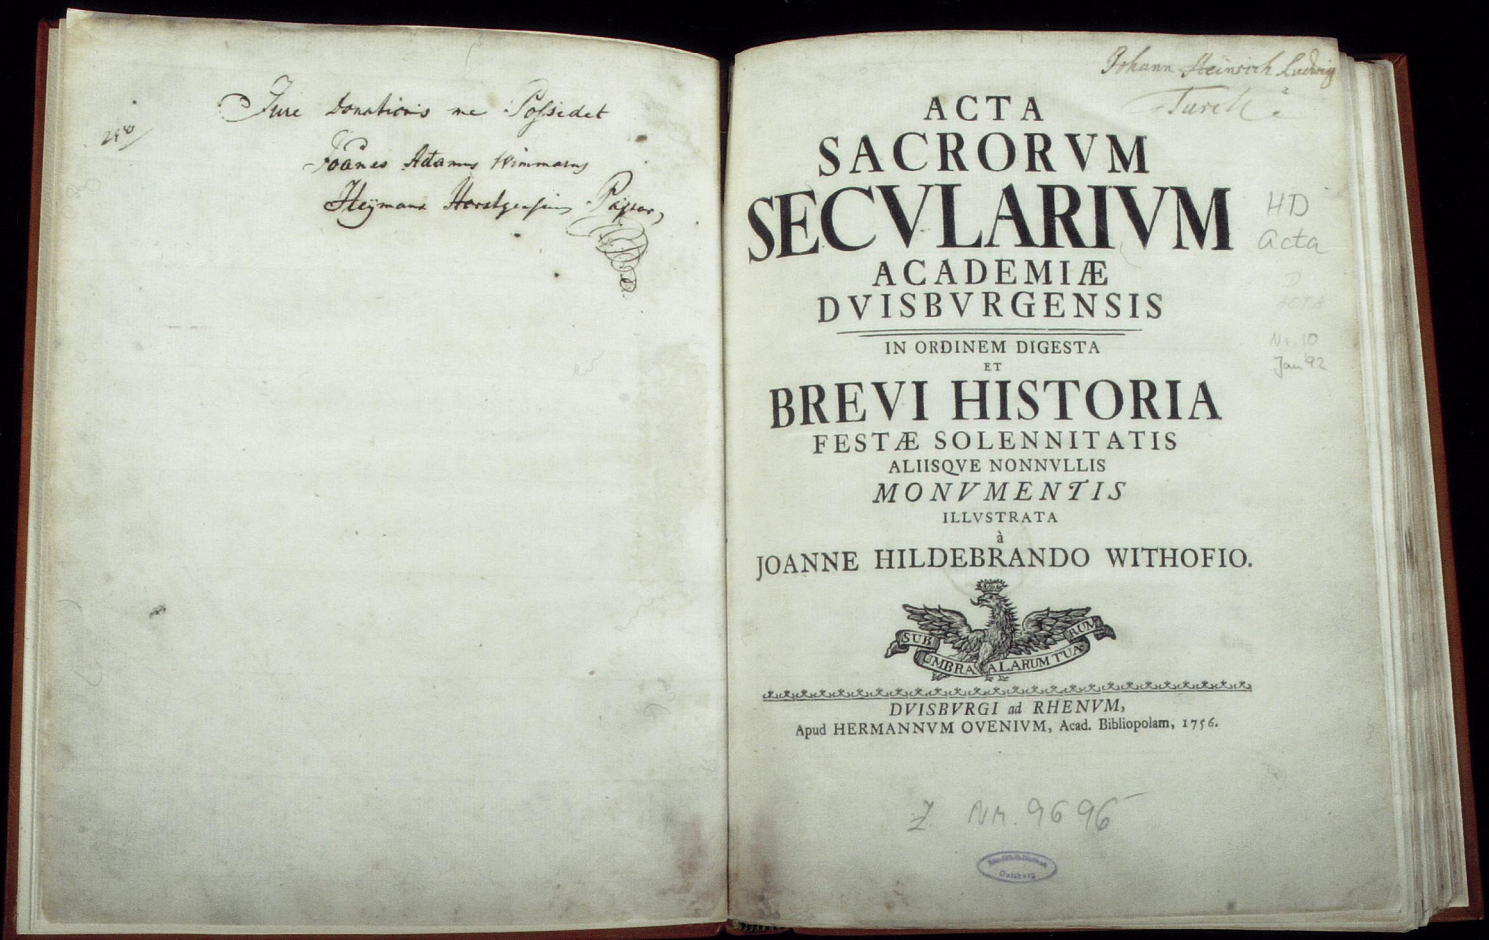 Jure Donationis me Possidet
Joañes Adamus Wimmarus
Heÿmans Pastor,
Johann Heinrich Ludwig
ACTA
SACRORVM
SECVLARIVM
ACADEMIÆ
DVISBVRGENSIS
IN ORDINEM DIGESTA
ET
BREVI HISTORIA
FESTÆ SOLENNITATIS
ALIISQVE NONNVLLIS
MONVMENTIS
ILLVSTRATA
à
JOANNE HILDEBRANDO WITHOFIO.
SUB UMBRA ALARUM TUARUM
DVISBVRGI ad RHENVM,
Apud HERMANNVM OVENIVM, Acad. Bibliopolam, 1756.
HD
Acta
D
ACTA
Nr. 10
Jan '92
Z Nr. 96 96
Duisburg